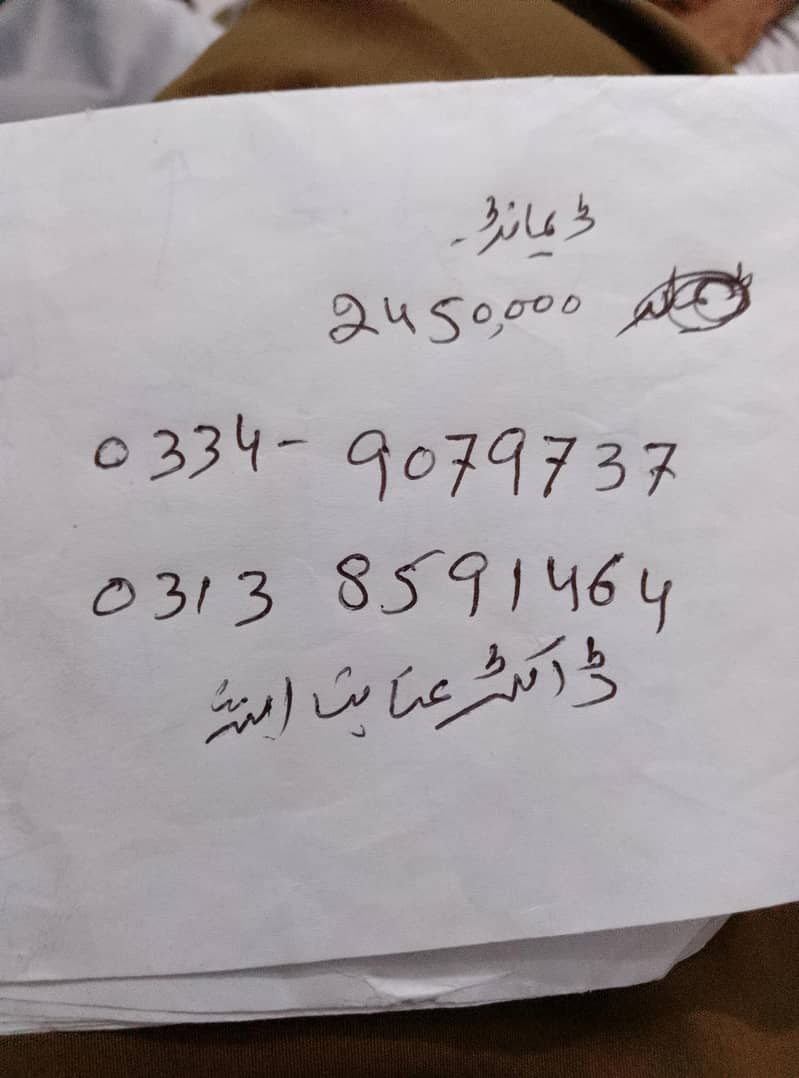 ڈیمانڈ۔
2450,000
0334- 9079737
0313 8591464
ڈاکٹر عنایت اللہ